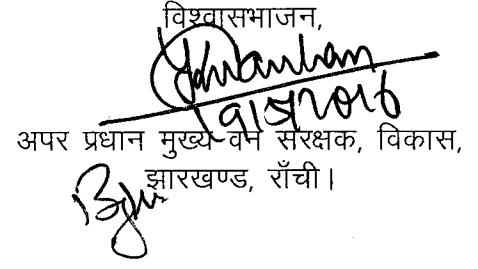 विश्वासभाजन,
अपर प्रधान मुख्य वन संरक्षक, विकास,
झारखण्ड, राँची।